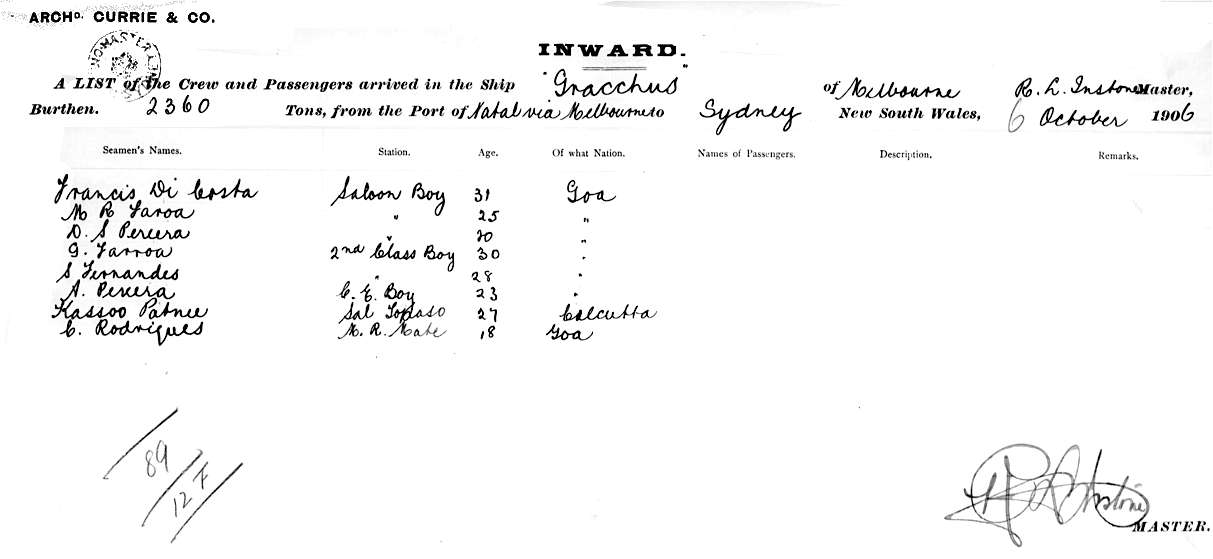 ARCHD. CURRIE & CO.
INWARD.
A LIST of the Crew and Passengers arrived in the Ship "Gracchus" of Melbourne R. L. Instone Master,
Burthen. 2360 Tons, from the Port of Natal via Melbourne to Sydney New South Wales, 6 October 1906
Seamen's Names. Station. Age. Of what Nation. Names of Passengers. Description. Remarks.
Francis Di Costa Saloon Boy 31 Goa
M R Faroa " 25 "
D. S Pereira " 20 "
G. Farroa 2nd Class Boy 30 "
S Fernandes " 28 "
A. Pereira C. E. Boy 23 "
Kassoo Patnee Sal Topaso 27 Calcutta
C. Rodrigues M. R. Mate 18 Goa
89
12 F
MASTER.